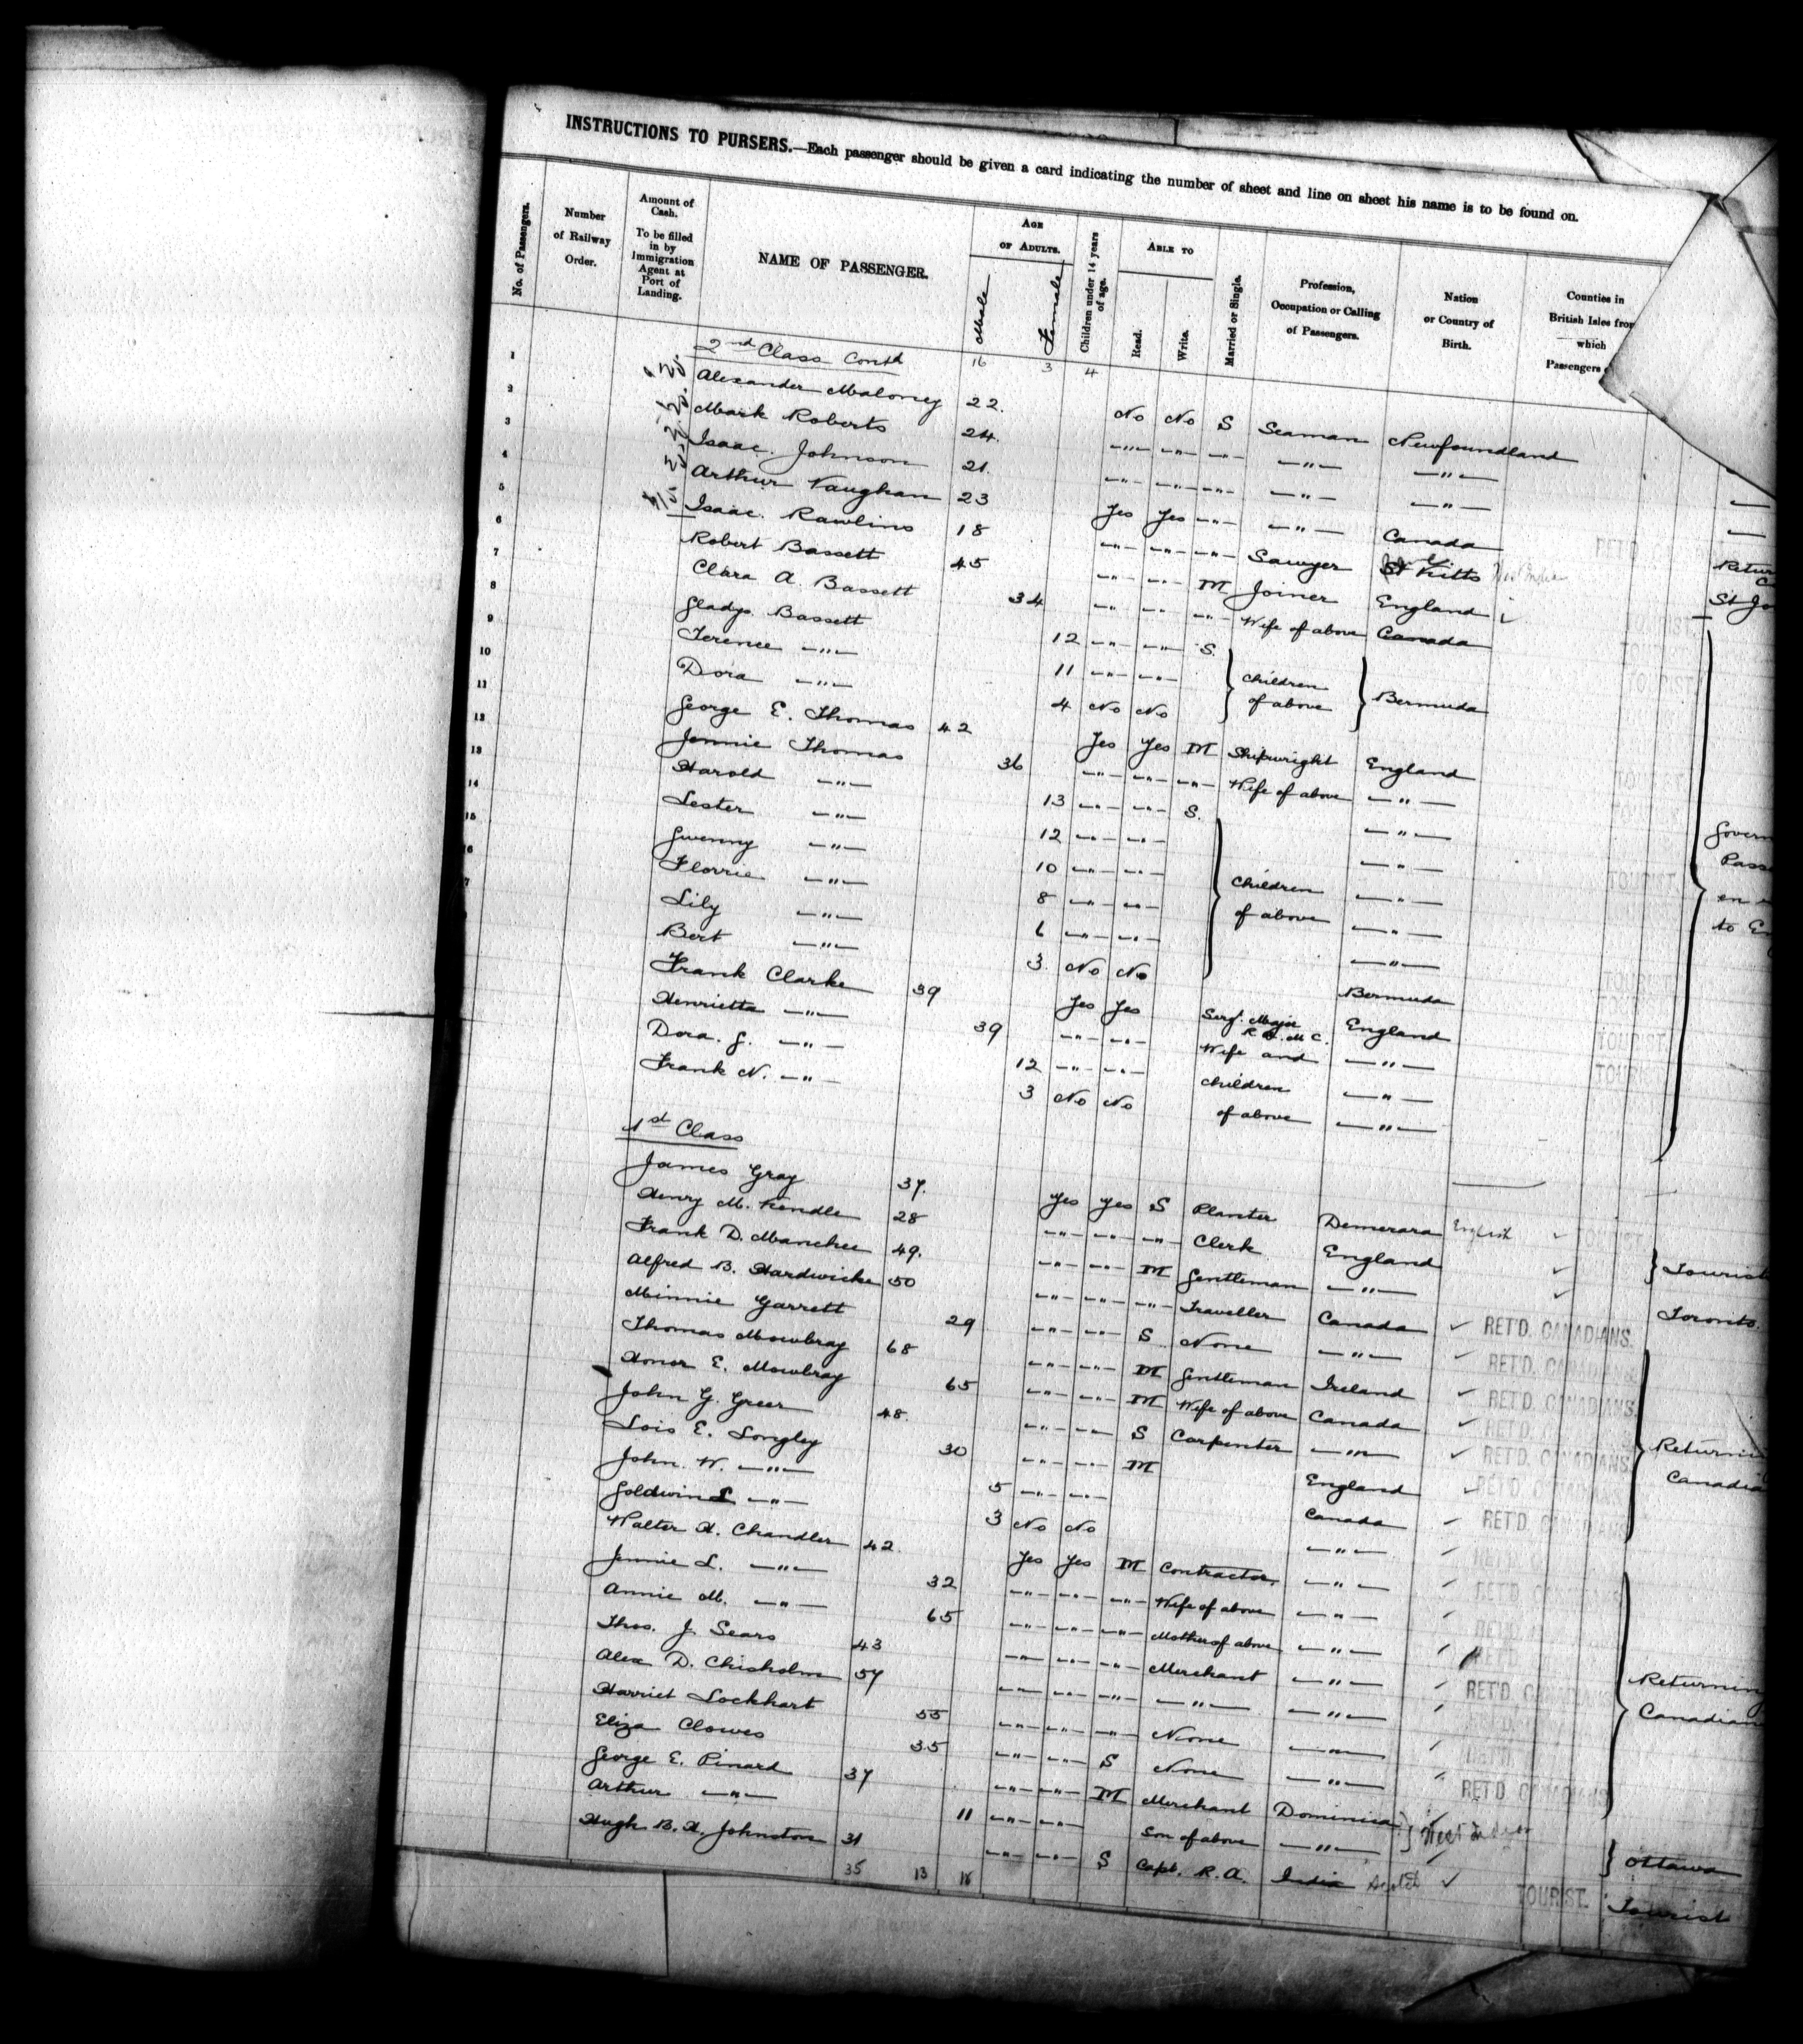 INSTRUCTIONS TO PURSERS.—Each passenger should be given a card indicating the number of sheet and line on sheet his name is to be found on.
No. of Passengers. Number of Railway Order. Amount of Cash. To be filled in by Immigration Agent at Port of Landing. NAME OF PASSENGER. AGE OF ADULTS. Male Female Children under 14 years of age. ABLE TO Read. Write. Married or Single. Profession, Occupation or Calling of Passengers. Nation or Country of Birth. Counties in British Isles from which Passengers
2nd Class Contd 16 3 4
1 Alexander Maloney 22. No No S Seaman Newfoundland
2 Mark Roberts 24. —"— —"— —"— —"— —"—
3 Isaac. Johnson 21. —"— —"— —"— —"— —"—
4 Arthur Vaughan 23 Yes Yes —"— —"— Canada
5 Isaac. Rawlins 18 —"— —"— —"— Sawyer St Kitts
6 Robert Bassett 45 —"— —"— M Joiner England
7 Clara A. Bassett 34 —"— —"— —"— Wife of above Canada
8 Gladys Bassett 12 —"— —"— S.
9 Terence —"— 11 —"— —"— children of above Bermuda
10 Dora —"— 4 No No
11 George E. Thomas 42 Yes Yes M Shipwright England
12 Jennie Thomas 36 —"— —"— —"— Wife of above —"—
13 Harold —"— 13 —"— —"— S. —"—
14 Lester —"— 12 —"— —"— —"—
15 Gwenny —"— 10 —"— —"— children —"—
6 Florrie —"— 8 —"— —"— of above —"—
7 Lily —"— 6 —"— —"— —"—
Bert —"— 3. No No Bermuda
Frank Clarke 39 Yes Yes Sergt. Major R.A.M.C. England
Henrietta —"— 39 —"— —"— Wife and —"—
Dora. G. —"— 12 —"— —"— children —"—
Frank N. —"— 3 No No of above —"—
1st Class
James Gray 37. Yes Yes S Planter Demerara English
Henry M. Kendle 28 —"— —"— —"— Clerk England
Frank D. Manchee 49. —"— —"— M Gentleman —"—
Alfred B. Hardwicke 50 —"— —"— —"— Traveller Canada RET'D. CANADIANS. Toronto.
Minnie Garrett 29 —"— —"— S None —"— RET'D. CANADIANS
Thomas Mowbray 68 —"— —"— M Gentleman Ireland RET'D. CANADIANS.
Honor E. Mowbray 65 —"— —"— M Wife of above Canada
John G. Greer 48. —"— —"— S Carpenter —"— RET'D. CANADIANS
Lois E. Longley 30 —"— —"— M England RET'D. CANADIANS
John. W. —"— 5 —"— —"— Canada RET'D. CANADIANS
Goldwin L —"— 3 No No —"—
Walter H. Chandler 42. Yes Yes M Contractor, —"—
Jennie L. —"— 32 —"— —"— —"— Wife of above —"—
Annie M. —"— 65 —"— —"— —"— Mother of above —"—
Thos. J. Sears 43 —"— —"— —"— Merchant —"— RET'D. CANADIANS
Alex D. Chisholm 57 —"— —"— —"— —"— —"—
Harriet Lockhart 55 —"— —"— —"— None —"—
Eliza Clowes 35 —"— —"— S None —"— RET'D CANADIANS
George E. Pinard 37 —"— —"— M Merchant Dominica West Indies
Arthur —"— 11 —"— —"— Son of above —"— Ottawa
Hugh B. H. Johnston 31 —"— —"— S Capt. R.A. India Scotch TOURIST. Tourist
35 13 18